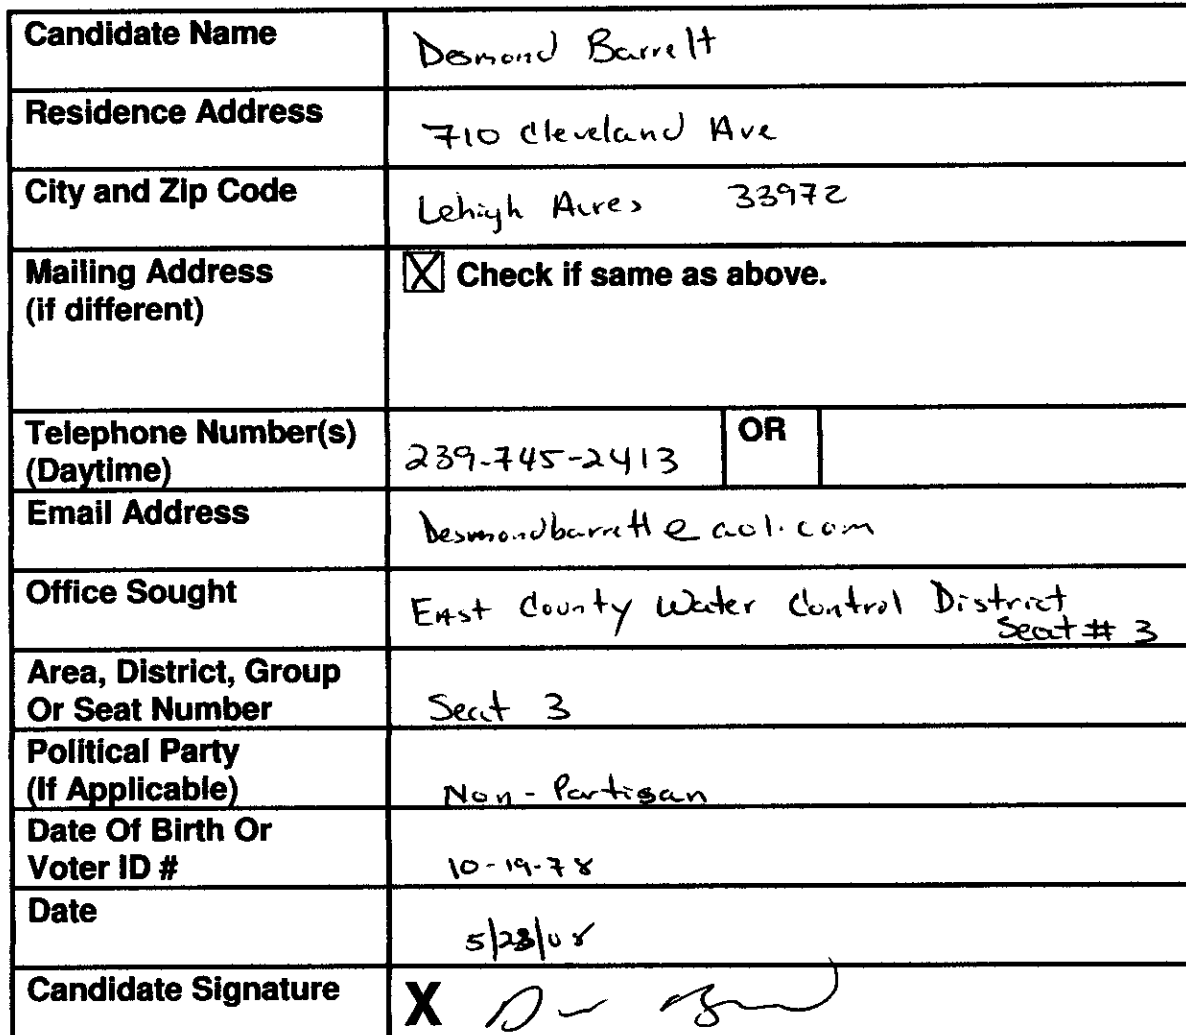 Candidate Name Desmond Barrett
Residence Address 710 Cleveland Ave
City and Zip Code Lehigh Acres 33972
Mailing Address ☒ Check if same as above.
(if different)
Telephone Number(s) 239-745-2413 OR
(Daytime)
Email Address Desmondbarrett@aol.com
Office Sought East County Water Control District
Seat # 3
Area, District, Group
Or Seat Number Seat 3
Political Party
(If Applicable) Non-Partisan
Date Of Birth Or
Voter ID # 10-19-78
Date 5/28/08
Candidate Signature X